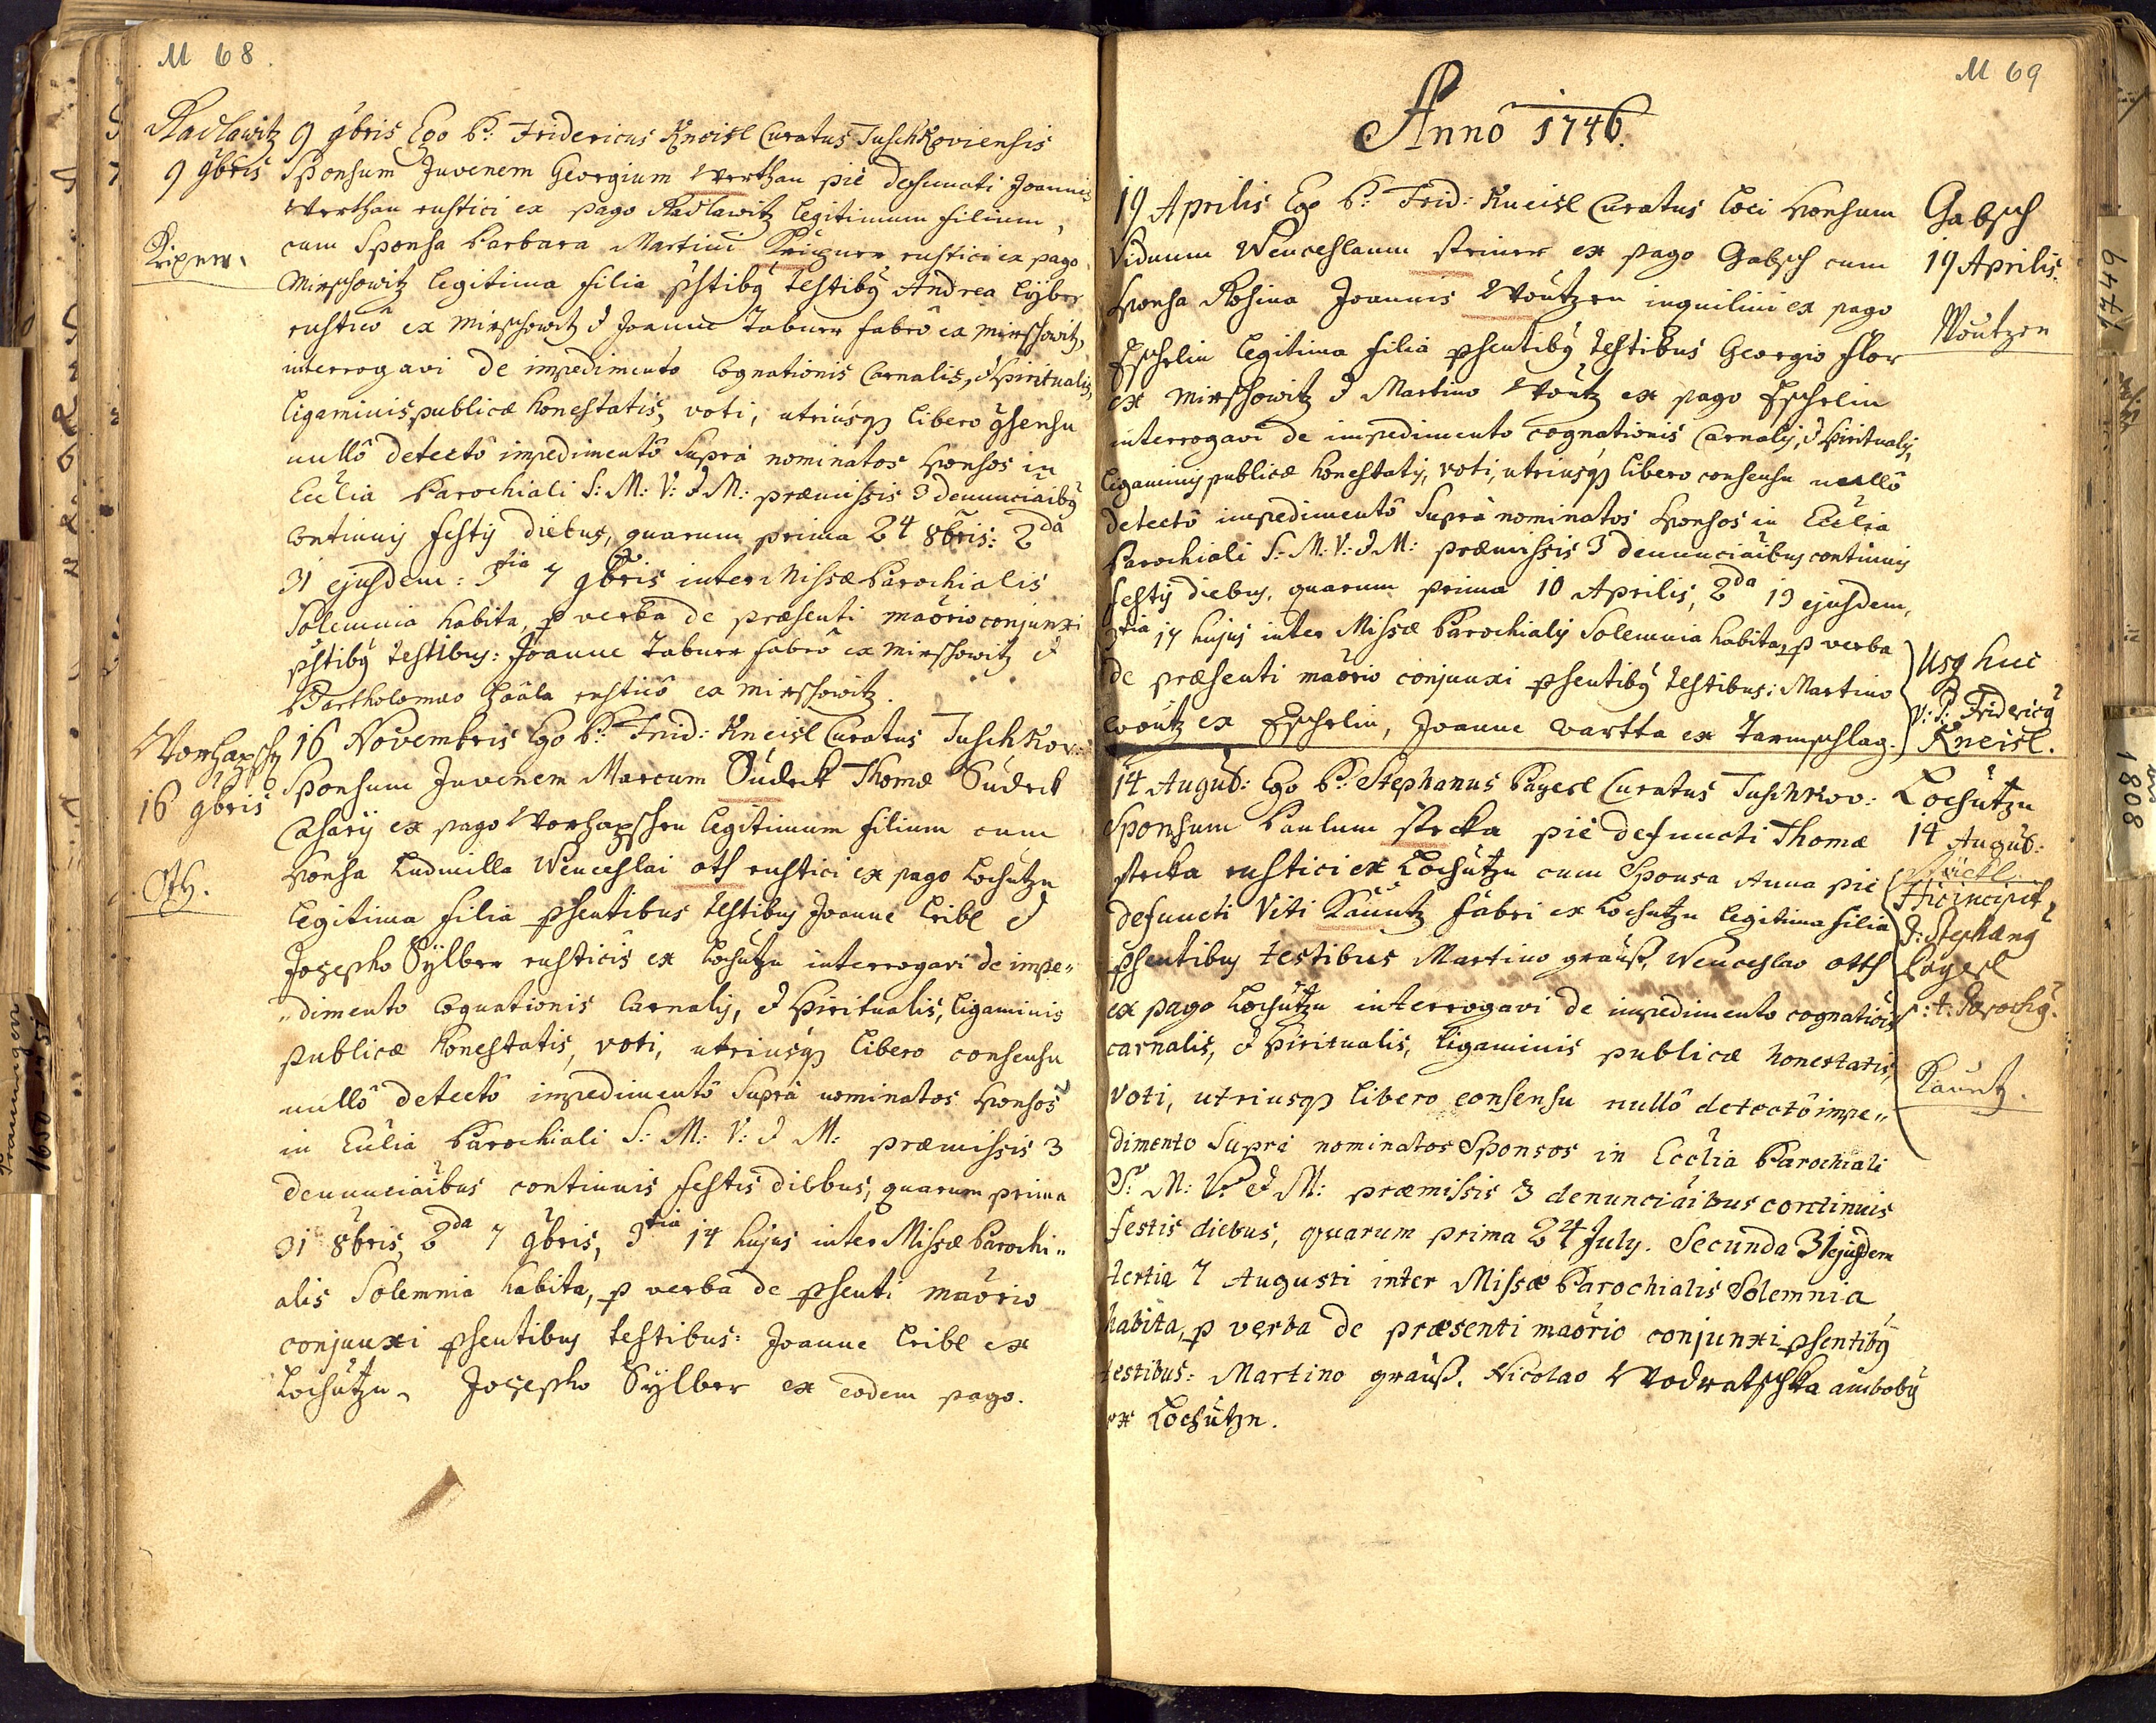 M 68.
Radlawitz
9 9bris
Kripner.
9 9bris Ego P: Fridericus Kneisl Curatus Tuschkoviensis
Sponsum Juvenem Georgium Werthan pie defuncti Joannis
Werthan rustici ex pago Radlawitz legitimum filium,
cum Sponsa Barbara Martini Kripner rustici ex pago
Mirschowitz legitima filia pstiby testiby Andrea
rustico ex Mirschowitz & Joanne Tabner fabrô ex Mirschowitz,
interrogavi de impedimento Cognationis Carnalis, & Spiritualis,
ligaminis publicæ honestatis, voti, utriusq libero gsensu
nullô detectô impedimentô Suprà nominatos Sponsos in
Ecclia Parochiali S: M: V: & M: præmissis 3 denunciaiby
continuis festis diebus, quarum prima 24 8bris: 2da
31 ejusdem: 3tia 7 9bris inter Missæ Parochialis
Solemnia habita, p verba de præsenti maôrio conjunxi
pstiby testibus: Joanne Tabner fabrô ex Mirschowitz &
Bartholomæo rusticô ex Mirschowitz.
16 9bris
Oth.
16 Novembris Ego P: Frid: Kneisl Curatus Tuschkov:
Sponsum Juvenem Marcum Sudek Thomæ Sudek
Casarij ex pago legitimum filium cum
Sponsa Ludmilla Wenceslai oth rustici ex pago Lochutzn
legitima filia psentibus testibus Joanne &
Josepho Sÿlber rusticis ex Lochutzn interrogavi de impe„
„dimento Cognationis Carnalis, & Spiritualis, ligaminis
publicæ honestatis, voti, utriusq libero consensu
nullô detectô impedimentô Suprà nominatos Sponsos
in Ecclia Parochiali S: M: V: & M: præmissis 3
denunciaibus continuis festis diebus, quarum prima
31 8bris, 2da 7 9bris, 3tia 14 hujus inter Missæ Parochi„
alis Solemnia habita, p verba de psenti maôrio
conjunxi psentibus testibus: Joanne ex
Lochutzn, Josepho Sÿlber ex eodem pago.
M 69
Anno 1746.
19 Aprilis Ego P: Frid: Kneisl Curatus loci Sponsum
Viduum Wenceslaum Steiner ex pago Gabsch cum
Sponsa Rosina Joannis Woutzen inquilini ex pago
legitima filia psentiby testibus Georgio flor
ex Mirschowitz & Martino Woutz ex pago
interrogavi de impedimento cognationis Carnalis, & Spiritualis,
ligaminis publicæ honestatis, voti, utriusq libero consensu nullô
detectô impedimentô Suprà nominatos Sponsos in Ecclia
Parochiali S: M: V: & M: præmissis 3 denunciaibus continuis
festis diebus, quarum prima 10 Aprilis, 2da 13 ejusdem,
3tia 17 hujus inter Missæ Parochialis Solemnia habita, p verba
de præsenti maôrio conjunxi psentiby testibus: Martino
Woutz ex Joanne Wartta ex Tarmschlag.
Gabsch
19 Aprilis.
Woutzen
Usq huc
P: Fridericq
Kneisl.
14 August: Ego P: Stephanus Payerl Curatus Tuschkov:
Sponsum Paulum Stecka pie defuncti Thomæ
Stecka rustici ex Lochutzn cum Sponsa Anna pie
defuncti Viti Kauntz fabri ex Lochutzn legitima filia
psentibus testibus Martino grauß, Wenceslao otth
ex pago Lochutzn interrogavi de impedimento cognatiois
carnalis, & Spiritualis, ligaminis publicæ honestatis,
voti, utriusq libero consensu nullô detectô impe„
dimento Suprà nominatos Sponsos in Ecclia Parochiali
S: M: V: & M: præmissis 3 denunciaibus continuis
festis diebus, quarum prima 24 July. Secunda 31 ejusdem
tertia 7 Augusti inter Missæ Parochialis Solemnia
habita, p verba de præsenti maôrio conjunxi psentiby
testibus: Martino grauß, Nicolao Wodratschka amboby
ex Lochutzn.
Lochutzn
14 August:
Hic incipit
P: Stephang
Payerl
p: t: Parochq.
Kauntz.
1749
1808
Trauungen
1650